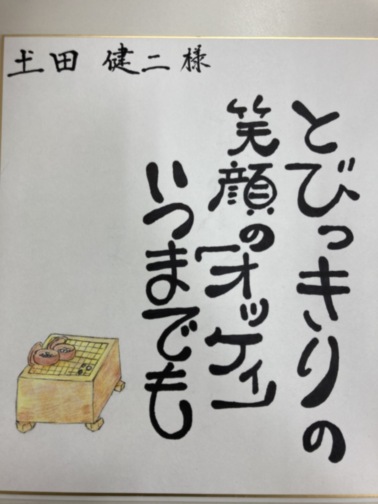 土田 健二 様
とびっきりの
笑顔の「オッケィ」
いつまでも